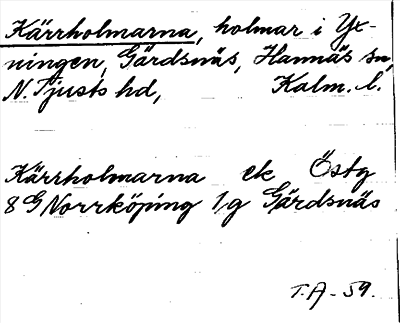 Kärrholmarna, holmar i Yx-
ningen, Gärdsnäs, Hannäs sn,
N. Tjusts hd, Kalm. l.
Kärrholmarna ek Östg
8 G Norrköping 1/g Gärdsnäs
T.A - 59.